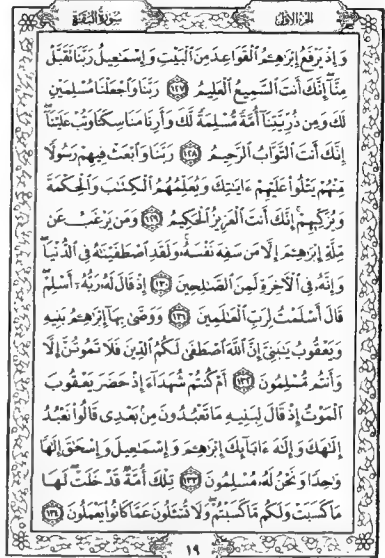 الجزء الأول
سورة البقرة
وَإِذْ يَرْفَعُ إِبْرَٰهِـۧمُ ٱلْقَوَاعِدَ مِنَ ٱلْبَيْتِ وَإِسْمَـٰعِيلُ رَبَّنَا تَقَبَّلْ
مِنَّآ إِنَّكَ أَنتَ ٱلسَّمِيعُ ٱلْعَلِيمُ ١٢٧ رَبَّنَا وَٱجْعَلْنَا مُسْلِمَيْنِ
لَكَ وَمِن ذُرِّيَّتِنَآ أُمَّةً مُّسْلِمَةً لَّكَ وَأَرِنَا مَنَاسِكَنَا وَتُبْ عَلَيْنَآ
إِنَّكَ أَنتَ ٱلتَّوَّابُ ٱلرَّحِيمُ ١٢٨ رَبَّنَا وَٱبْعَثْ فِيهِمْ رَسُولًا
مِّنْهُمْ يَتْلُوا۟ عَلَيْهِمْ ءَايَـٰتِكَ وَيُعَلِّمُهُمُ ٱلْكِتَـٰبَ وَٱلْحِكْمَةَ
وَيُزَكِّيهِمْ إِنَّكَ أَنتَ ٱلْعَزِيزُ ٱلْحَكِيمُ ١٢٩ وَمَن يَرْغَبُ عَن
مِّلَّةِ إِبْرَٰهِـۧمَ إِلَّا مَن سَفِهَ نَفْسَهُۥ وَلَقَدِ ٱصْطَفَيْنَـٰهُ فِى ٱلدُّنْيَا
وَإِنَّهُۥ فِى ٱلْـَٔاخِرَةِ لَمِنَ ٱلصَّـٰلِحِينَ ١٣٠ إِذْ قَالَ لَهُۥ رَبُّهُۥٓ أَسْلِمْ
قَالَ أَسْلَمْتُ لِرَبِّ ٱلْعَـٰلَمِينَ ١٣١ وَوَصَّىٰ بِهَآ إِبْرَٰهِـۧمُ بَنِيهِ
وَيَعْقُوبُ يَـٰبَنِىَّ إِنَّ ٱللَّهَ ٱصْطَفَىٰ لَكُمُ ٱلدِّينَ فَلَا تَمُوتُنَّ إِلَّا
وَأَنتُم مُّسْلِمُونَ ١٣٢ أَمْ كُنتُمْ شُهَدَآءَ إِذْ حَضَرَ يَعْقُوبَ
ٱلْمَوْتُ إِذْ قَالَ لِبَنِيهِ مَا تَعْبُدُونَ مِنۢ بَعْدِى قَالُوا۟ نَعْبُدُ
إِلَـٰهَكَ وَإِلَـٰهَ ءَابَآئِكَ إِبْرَٰهِـۧمَ وَإِسْمَـٰعِيلَ وَإِسْحَـٰقَ إِلَـٰهًا
وَٰحِدًا وَنَحْنُ لَهُۥ مُسْلِمُونَ ١٣٣ تِلْكَ أُمَّةٌ قَدْ خَلَتْ لَهَا
مَا كَسَبَتْ وَلَكُم مَّا كَسَبْتُمْ وَلَا تُسْـَٔلُونَ عَمَّا كَانُوا۟ يَعْمَلُونَ ١٣٤
١٩